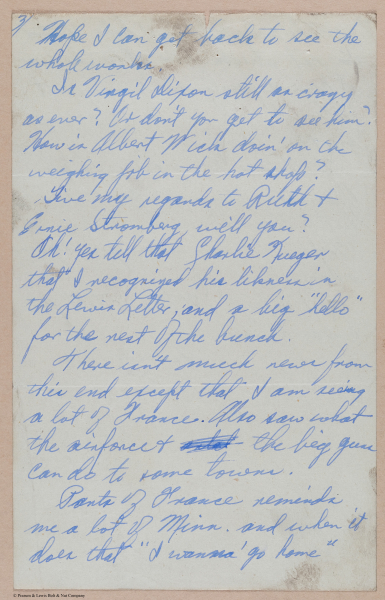 3)
Hope I can get back to see the
whole works.
Is Virgil Dixon still as crazy
as ever? Or don't you get to see him?
How is Albert Wick doin' on the
weighing job in the hot shop?
Give my regards to Ruth +
Ernie Stromberg will you?
Oh! yes tell that Charlie Kueger
that I recognized his likness in
the Lewis Letter, and a big "hello"
for the rest of the bunch.
There isn't much news from
this end except that I am seeing
a lot of France. Also saw what
the airforce + the big guns
can do to some towns.
Parts of France reminds
me a lot of Minn. and when it
does that "I wanna' go home"
© Pearson & Lewis Bolt & Nut Company